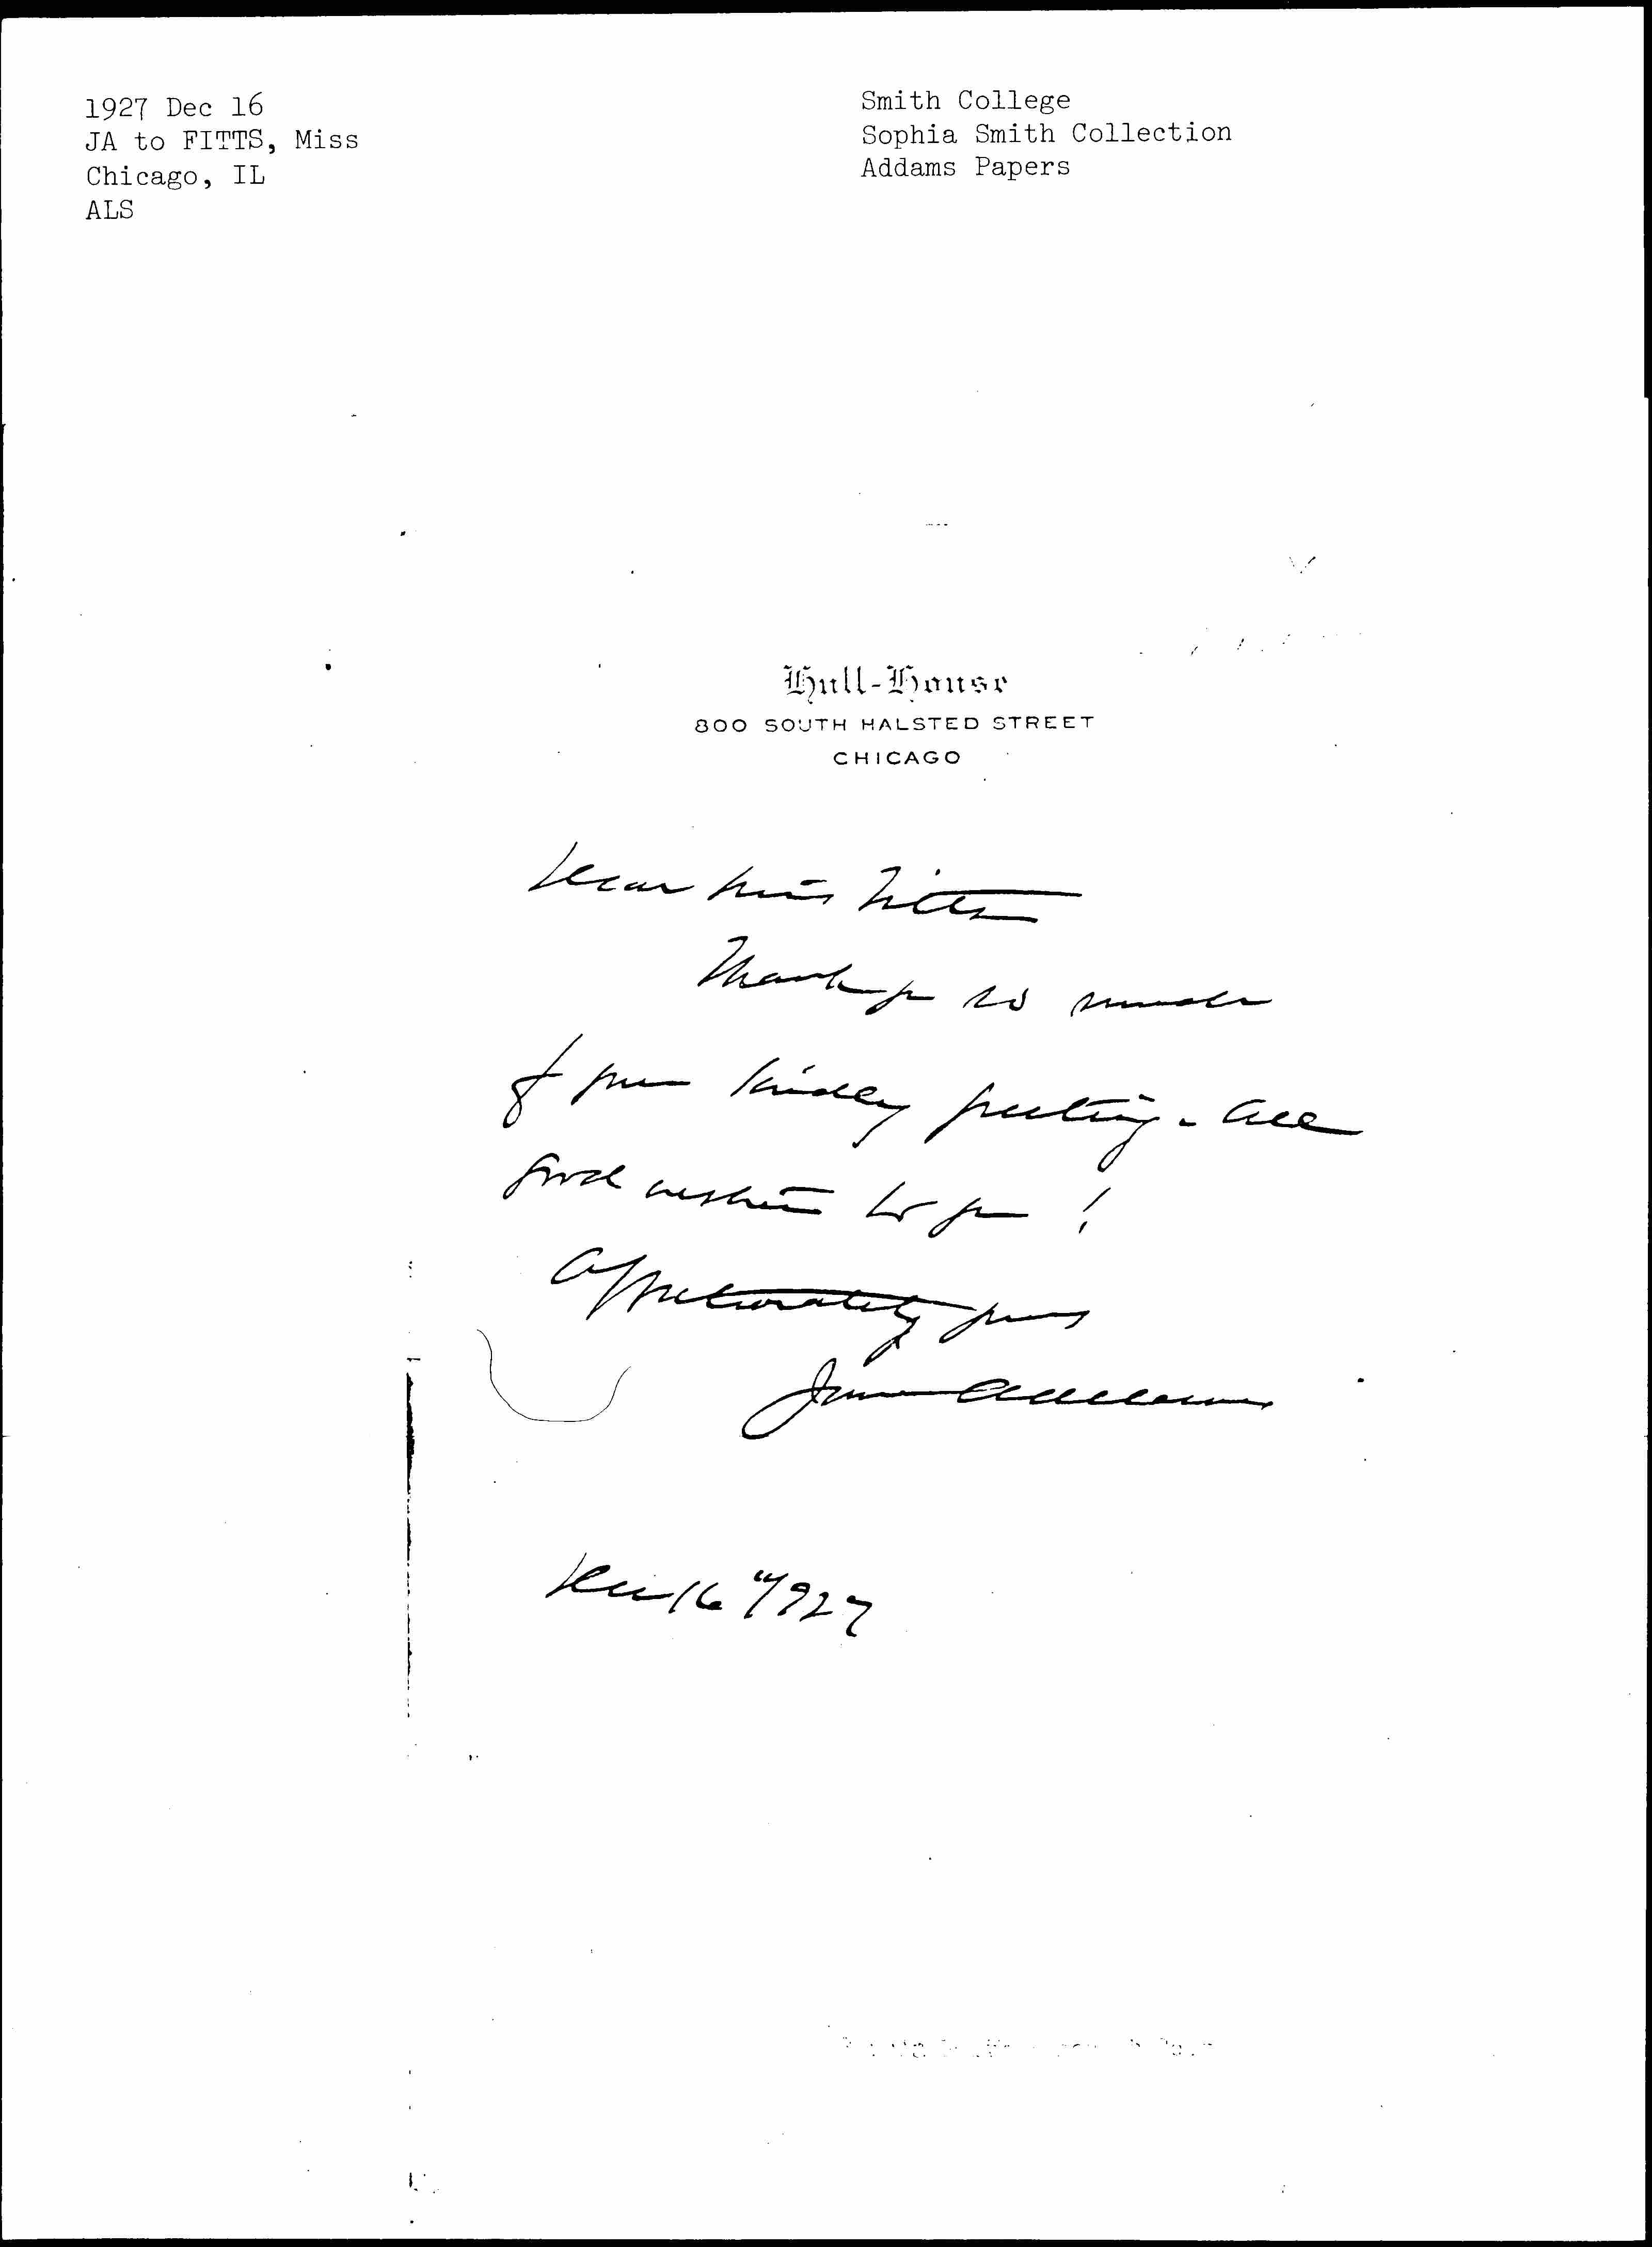 1927 Dec 16
JA to FITTS, Miss
Chicago, IL
ALS
Smith College
Sophia Smith Collection
Addams Papers
Hull-House
800 SOUTH HALSTED STREET
CHICAGO
Dear Miss Fitts
Thank you so much
for your kindly greeting - all
good wishes to you!
Affectionately yours
Jane Addams
Dec 16" 1927